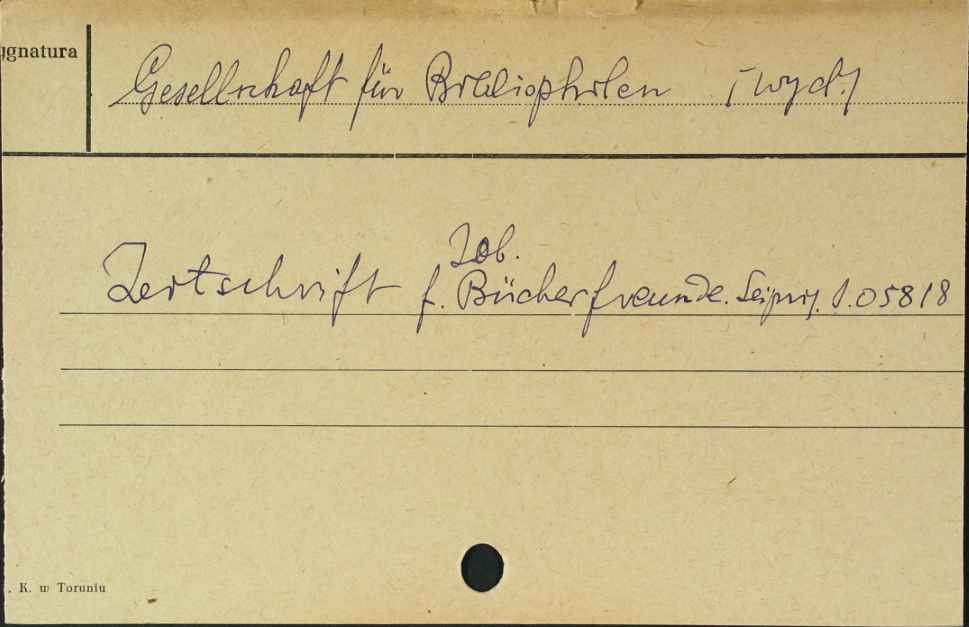 ygnatura
Gesellschaft für Bibliophilen (wyd.)
Zob.
Zeitschrift f. Bücherfreunde. Leipzig. P.05818
. K. w Toruniu